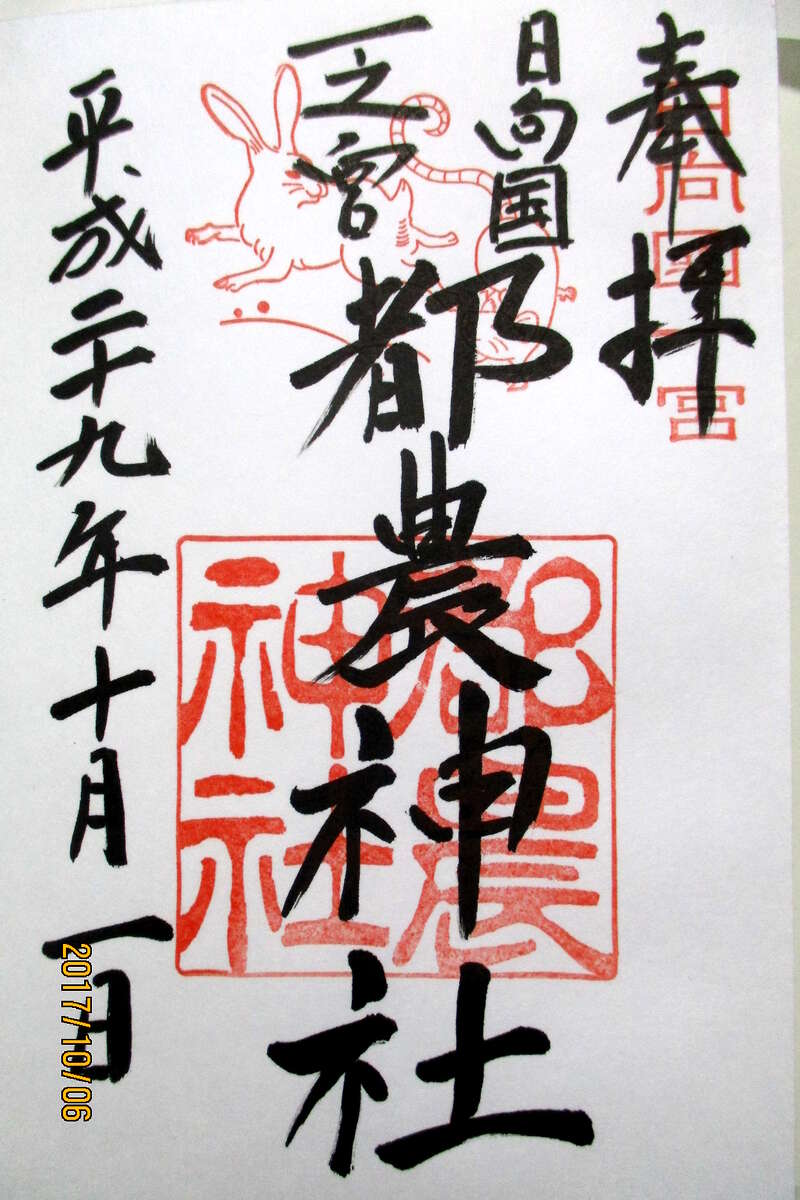 奉拝
日向国一宮
日向国
一之宮
都農神社
都農神社
平成二十九年十月一日
2017/10/06